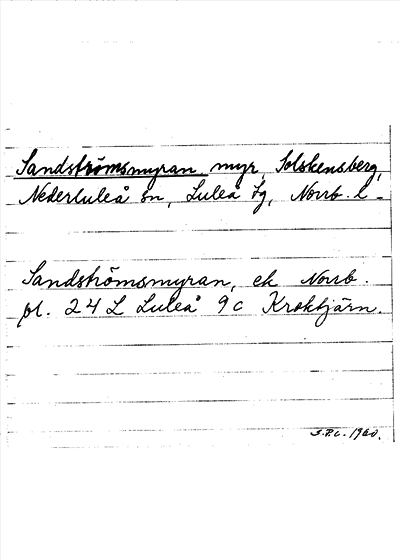 Sandströmsmyran myr, Solskensberg,
Nederluleå sn, Luleå tg, Norrb. l.
Sandströmsmyran, ek Norrb.
bl. 24 L Luleå 9c Kroktjärn.
S.P.C. 1960.